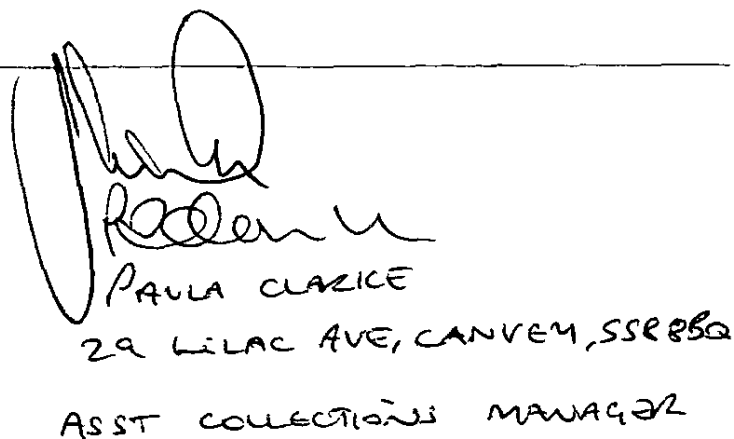 PAULA CLARKE
29 LILAC AVE, CANVEY, SS8 8BQ
ASST COLLECTIONS MANAGER